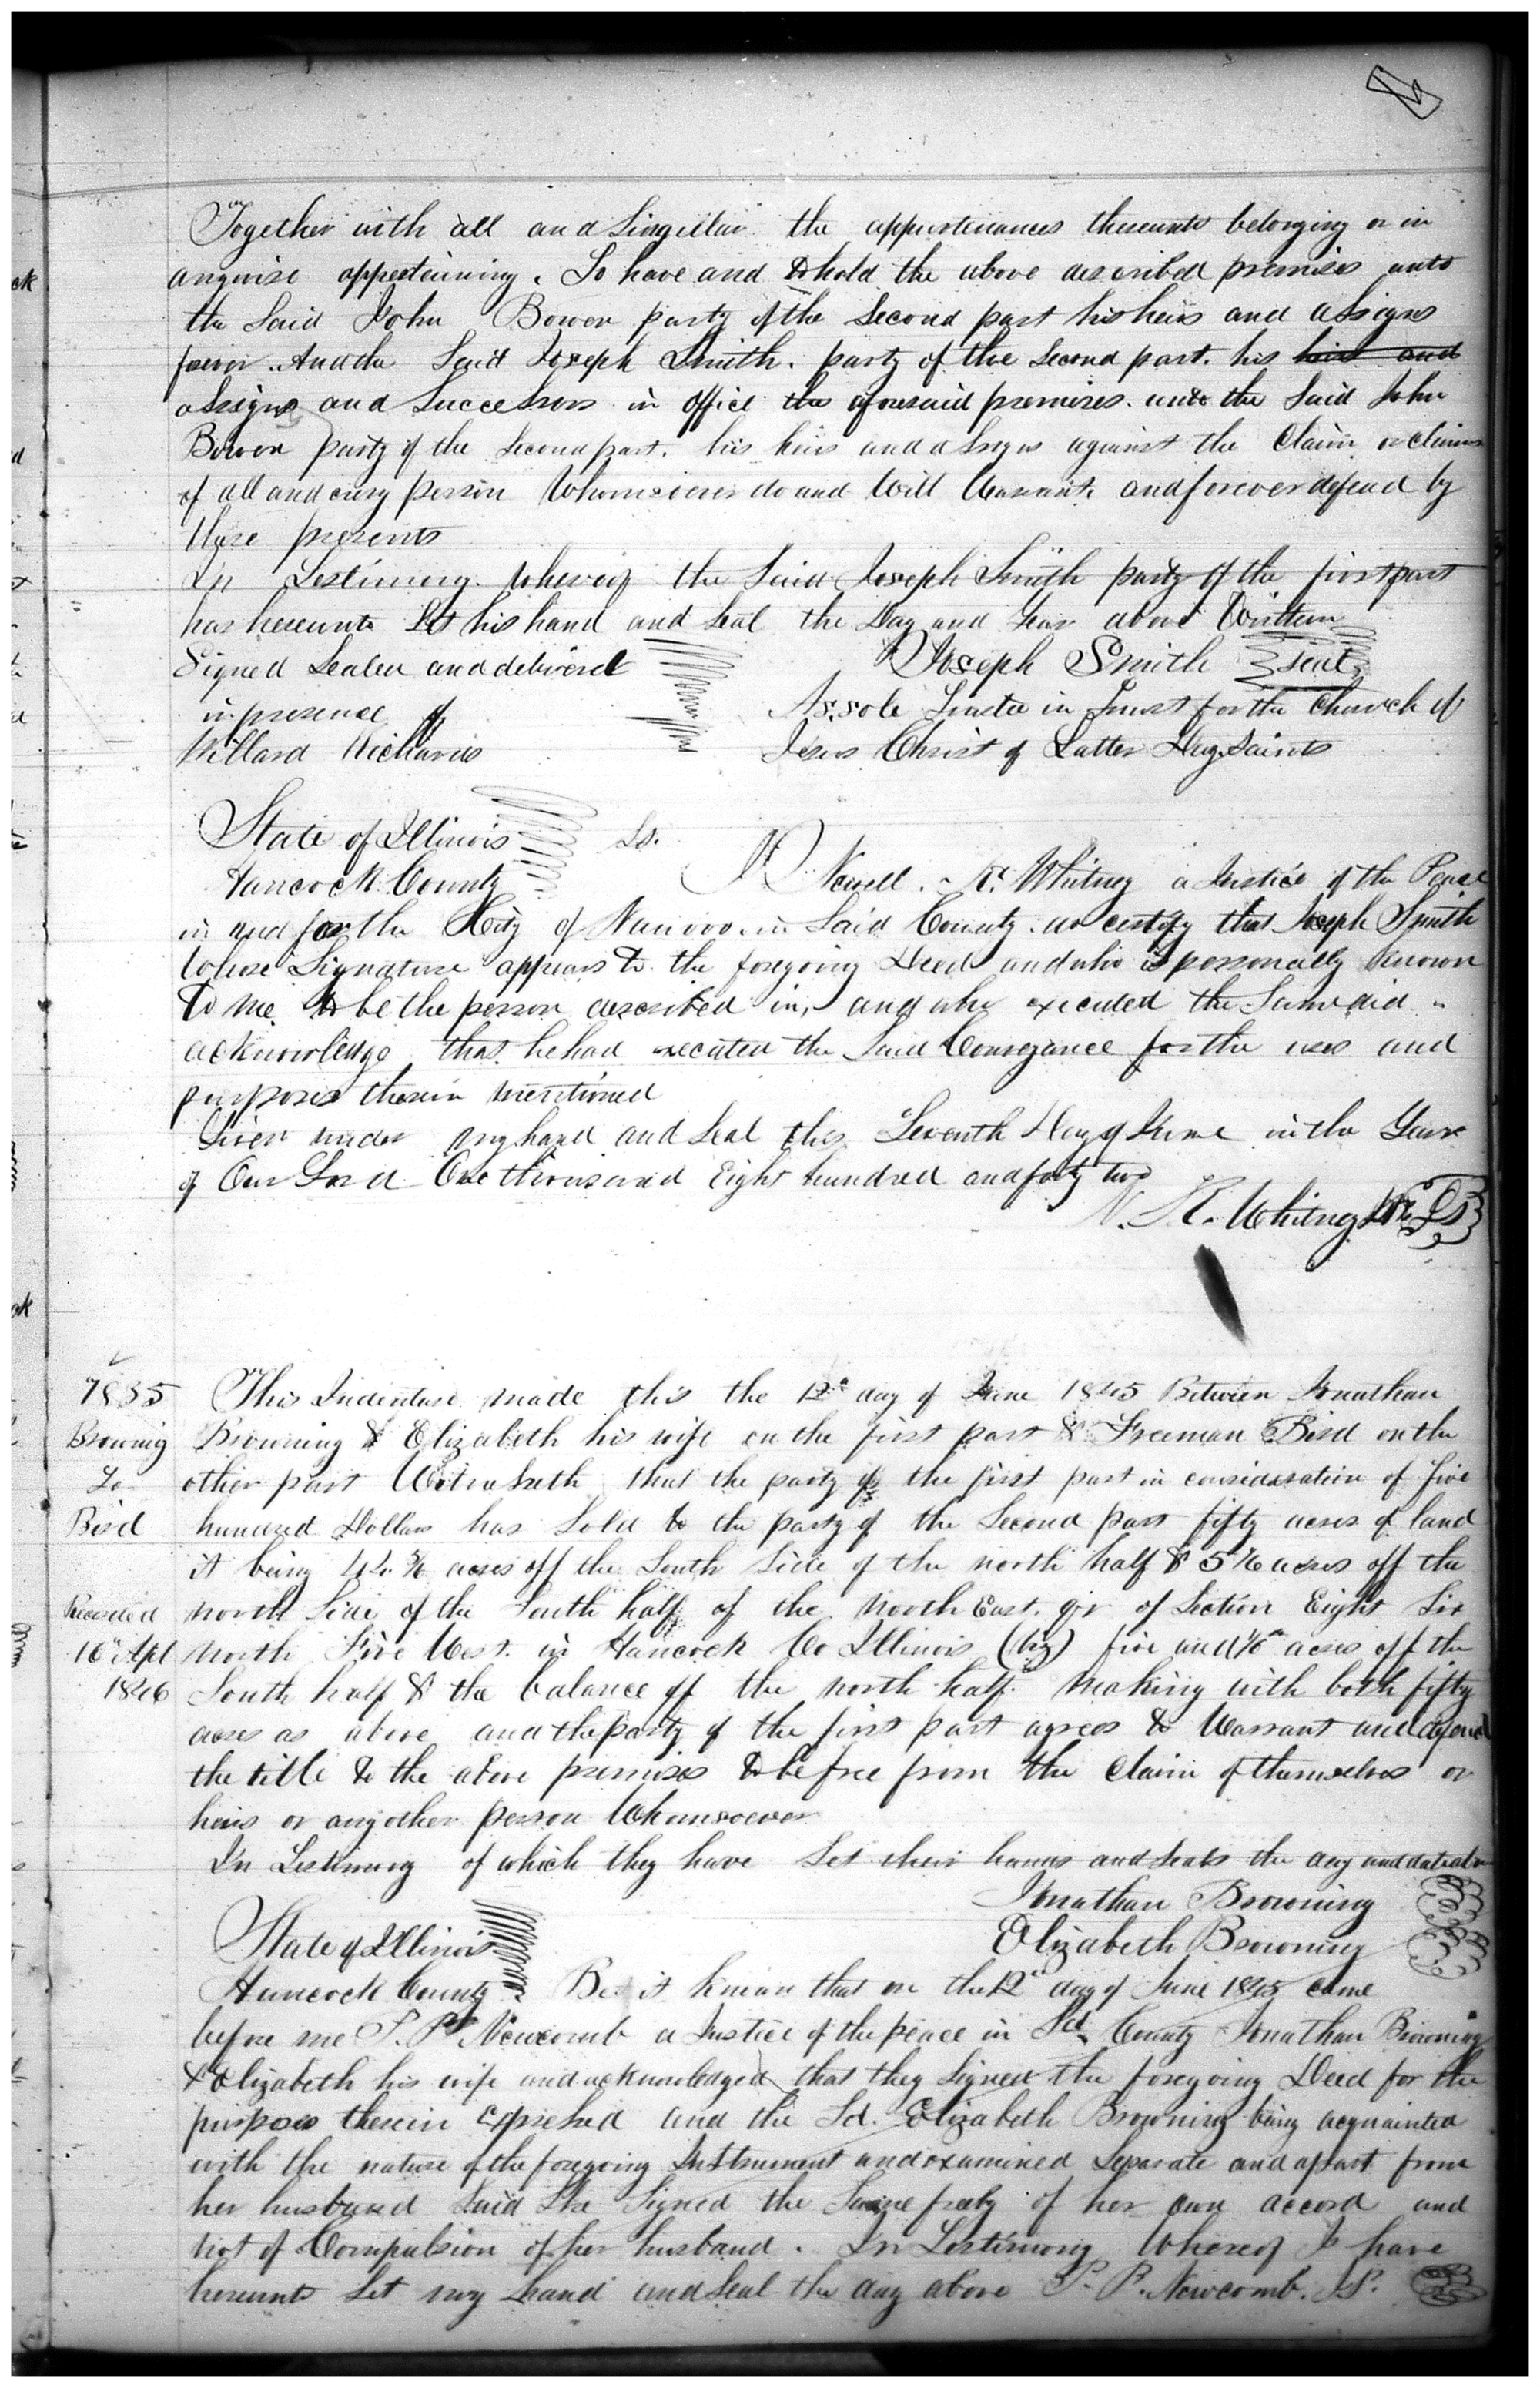 Together with all and Singular the appurtenances thereunto belonging or in
anywise appertaining. To have and to hold the above described premises unto
the Said John Bowen party of the Second part his heirs and assigns
forever. And the Said Joseph Smith. party of the Second part. his heirs and
assigns and Successors in office the aforesaid premises. unto the Said John
Bowen party of the Second part. his heirs and assigns against the Claim or claims
of all and every person Whomsoever do and Will Warrant. and forever defend by
these presents
In Testimony. Whereof the Said Joseph Smith party of the first part
has hereunto Set his hand and Seal the Day and Year above Written
Signed Sealed and delivered Joseph Smith Seal
in presence of As. sole Trustee in Trust for the Church of
Willard Richards Jesus Christ of Latter Day Saints
State of Illinois Ss.
Hancock County I Newell. K. Whitney a Justice of the Peace
in and for the City of Nauvoo. in Said County. do certify that Joseph Smith
Whose Signature appears to the foregoing Deed and who is personally known
to me to be the person described in, and who executed the Same did
acknowledge that he had executed the Said Conveyance for the uses and
purposes therein mentioned
Given under my hand and Seal this Seventh Day of June in the Year
of Our Lord One thousand Eight hundred and forty two
N. K. Whitney
7835 This Indenture made this the 12th day of June 1845 Between Jonathan
Browning Browning & Elizabeth his wife on the first part & Freeman Bird on the
To other part Witnesseth that the party of the first part in consideration of five
Bird hundred Dollars has Sold to the party of the Second part fifty acres of land
it being 44 5/6 acres off the South Side of the north half & 5 1/6 acres off the
Recorded north Side of the South half of the North East. qr of Section Eight Six
16th Apl North Five West. in Hancock Co Illinois (viz) five and 1/6th acres off the
1846 South half & the balance off the north half. making with both fifty
acres as above and the party of the first part agrees to Warrant and defend
the title to the above premises to be free from the Claim of themselves or
heirs or any other person Whomsoever
In Testimony of which they have Set their hands and Seals the day and date
Jonathan Browning
State of Illinois Elizabeth Browning
Hancock County Be it known that on the 12th day of June 1845 came
before me P. P. Newcomb a Justice of the peace in Sd County Jonathan Browning
& Elizabeth his wife and acknowledged that they Signed the foregoing Deed for the
purposes therein expressed and the Sd. Elizabeth Browning being acquainted
with the nature of the foregoing Instrument and examined Separate and apart from
her husband Said She Signed the Same freely of her own accord and
not of Compulsion of her husband. In Testimony Whereof I have
hereunto Set my hand and Seal the day above P. P. Newcomb. J.P.